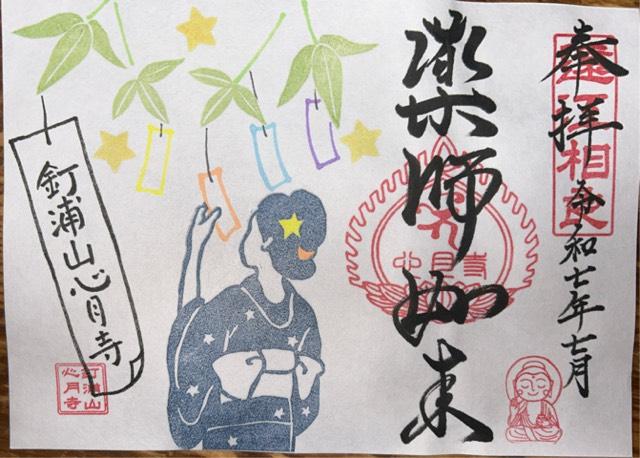 奉拝
遠江相良
令和七年七月
藥師如来
心月寺
釘浦山心月寺
釘浦山
心月寺